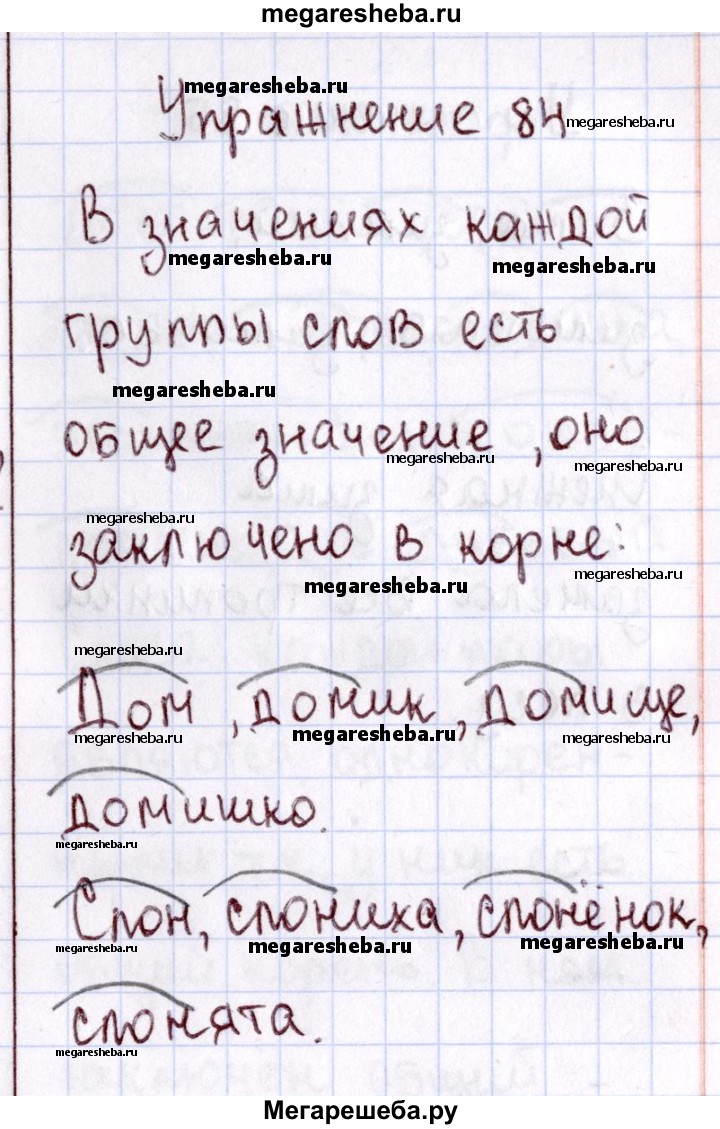 megaresheba.ru
megaresheba.ru
Упражнение 84
megaresheba.ru
В значениях каждой
megaresheba.ru
megaresheba.ru
группы слов есть
megaresheba.ru
общее значение, оно
megaresheba.ru
megaresheba.ru
megaresheba.ru
заключено в корне:
megaresheba.ru
megaresheba.ru
megaresheba.ru
Дом, домик, домище,
megaresheba.ru
megaresheba.ru
megaresheba.ru
домишко.
Слон, слониха, слонёнок,
megaresheba.ru
megaresheba.ru
megaresheba.ru
слонята.
megaresheba.ru
Мегарешеба.ру